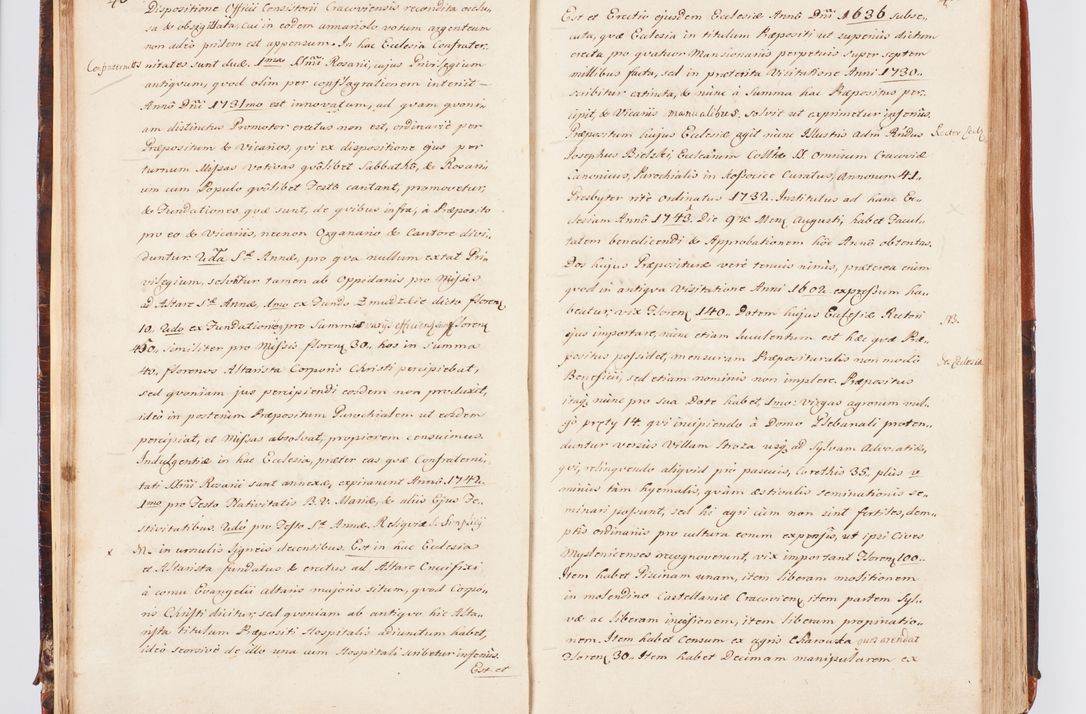 Dispositione Officii Consistorii Cracoviensis recondita occlu„
sa & obsigillata, cui in eodem armariolo votum argenteum
non adeo pridem est appensum. In hac Ecclesia Confrater„
Confraternitas
nitates sunt duæ. 1ma SSmi Rosarii, cujus Privilegium
antiquum, quod olim per conflagrationem interiit
Anno Dni 1731mo est innovatum, ad quam quoni„
am distinctus Promotor erectus non est, ordinarie per
Præpositum & Vicarios, qui ex dispositione ejus per
turnum Missas votivas quolibet Sabbatho, & Rosari
um cum Populo quolibet Festo cantant, promovetur,
& Fundationes quæ sunt, de quibus infra, à Præposito
pro eo & Vicariis, necnon Organario & Cantore divi„
duntur. Uda Stæ Annæ, pro qua nullum extat Pri„
vilegium, solvitur tamen ab Oppidanis pro Missis
ad Altare Stæ Annæ, 1mo ex Fundo Zmudzkie dicto floren
10. Udo ex Fundatione pro Summis varijs floren
450„ similiter pro Missis floren 30„ hos in summa
40„ florenos Altarista Corporis Christi percipiebat,
sed quoniam jus percipiendi eosdem non produxit,
ideo in posterum Præpositum Parochialem ut eosdem
percipiat, et Missas absolvat, propiorem censuimus.
Indulgentiæ in hac Ecclesia, præter eas quæ Confraterni„
tati SSmi Rosarii sunt annexæ, expirarunt Anno 1742„
1mo pro Festo Nativitatis B. V. Mariæ, & aliis Ejus Fe„
stivitatibus. Udo pro Festo Stæ Annæ. Reliquiæ S. Simplicij
M. in urnulis ligneis decentibus. Est in hac Ecclesia
et Altarista fundatus & erectus ad Altare Crucifixi
à cornu Evangelii altaris majoris situm, quod Corpo„
ris Christi dicitur, sed quoniam ab antiquo hic Alta„
rista titulum Præpositi Hospitalis adiunctum habet,
ideo seorsive de illo una cum Hospitali scribetur inferius.
Est et
Est et Erectio ejusdem Ecclesiæ Anno Dni 1636 subse„
cuta, quæ Ecclesia in titulum Præpositi ut superius dictum
erecta pro quatuor Mansionariis perpetuis super septem
millibus facta, sed in præterita Visitatione Anni 1730„
scribitur extincta, & nunc à Summa hac Præpositus per„
cipit, & Vicariis manualibus, solvit ut exprimetur inferius.
Præpositum hujus Ecclesiæ agit nunc Illustris Adm Rndus
Rector Eccla
Josephus Bielski, Ecclarum Collthæ SS. Omnium Cracoviæ
Canonicus, Parochialis in Kossocice Curatus, Annorum 41„
Presbyter rite Ordinatus 1732. Institutus ad hanc Ec„
clesiam Anno 1743. Die 9 Men Augusti, habet Facul„
tatem benedicendi & Approbationem hoc Anno obtentas.
Dos hujus Præpositure vere tenuis nimis, præterea cum
quod in antiqua Visitatione Anni 1602. expressum ha„
beatur, vix Floren 140„ Dotem hujus Ecclesiæ Rectori
NB.
ejus importare, nunc etiam luculentum est hæc quæ Præ„
positus possidet, mensuram Præposituralis non modo
Dos Ecclesiæ
Beneficii, sed etiam nominis non implere. Præpositus
itaq nunc pro sua Dote habet, 1mo: virgas agrorum vul„
go pręty 14„ qui incipiendo à Domo Plebanali proten„
duntur versus Villam Stroza usq ad Sylvam Advocatiæ,
qui, relinquendo aliquid pro pascuis, Corethis 35„ plus v
minus tàm hyemalis, quàm æstivalis seminationis se„
minari possunt, sed hi agri cum non sint fertiles, dem„
ptis ordinariis pro cultura eorum expensis, ut ipsi Cives
Myslenicenses recognoverunt, vix important Floren 100„
Item habet Piscinam unam, item liberam molitionem
in molendino Castellaniæ Cracovien, item partem Syl„
væ ac liberam incisionem, item liberam propinatio„
nem. Item habet Censum ex agris Charowka qui arendat
Floren 30„ Item habet Decimam manipularem ex